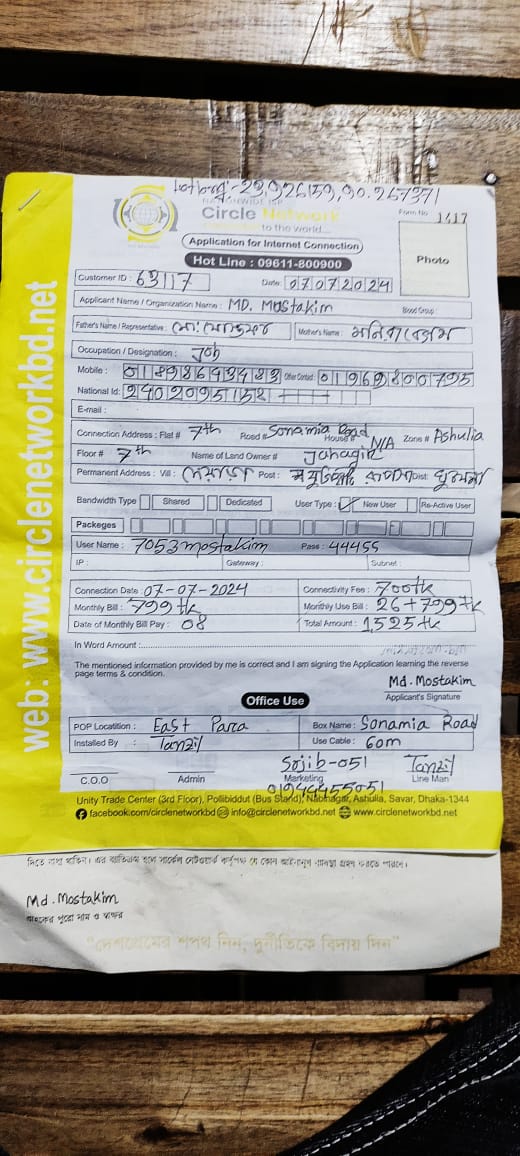 NATIONWIDE ISP
Circle Network
to the world...
Form No 1417
Application for Internet Connection
Hot Line : 09611-800900
Photo
Customer ID : 63117 Date: 07072024
Applicant Name / Organization Name : MD. Mostakim Blood Group :
Father's Name / Representative : Mother's Name :
Occupation / Designation : Job
Mobile : Other Contact : 01969800795
National Id:
E-mail :
Connection Address : Flat # 7th Road # Sonamia Road House # N/A Zone # Ashulia
Floor # 7th Name of Land Owner # Jahagir
Permanent Address : Vill : Post : Dist:
Bandwidth Type Shared Dedicated User Type : New User Re-Active User
Packeges
User Name : 7053mostakim Pass : 44455
IP : Gateway : Subnet :
Connection Date : 07-07-2024 Connectivity Fee : 700tk
Monthly Bill : 799 tk Monthly Use Bill : 26+799tk
Date of Monthly Bill Pay : 08 Total Amount : 1525tk
In Word Amount :
The mentioned information provided by me is correct and I am signing the Application learning the reverse
page terms & condition.
Md. Mostakim
Applicant's Signature
Office Use
POP Locatition : East Para Box Name : Sonamia Road
Installed By : Tanzil Use Cable : 60m
Sojib-051 Tanzil
C.O.O Admin Marketing Line Man
01944455051
Unity Trade Center (3rd Floor), Pollibiddut (Bus Stand), Nabinagar, Ashulia, Savar, Dhaka-1344
facebook.com/circlenetworkbd info@circlenetworkbd.net www.circlenetworkbd.net
web: www.circlenetworkbd.net
Md. Mostakim
গ্রাহকের পুরো নাম ও স্বাক্ষর
"দেশপ্রেমের শপথ নিন, দুর্নীতিকে বিদায় দিন"